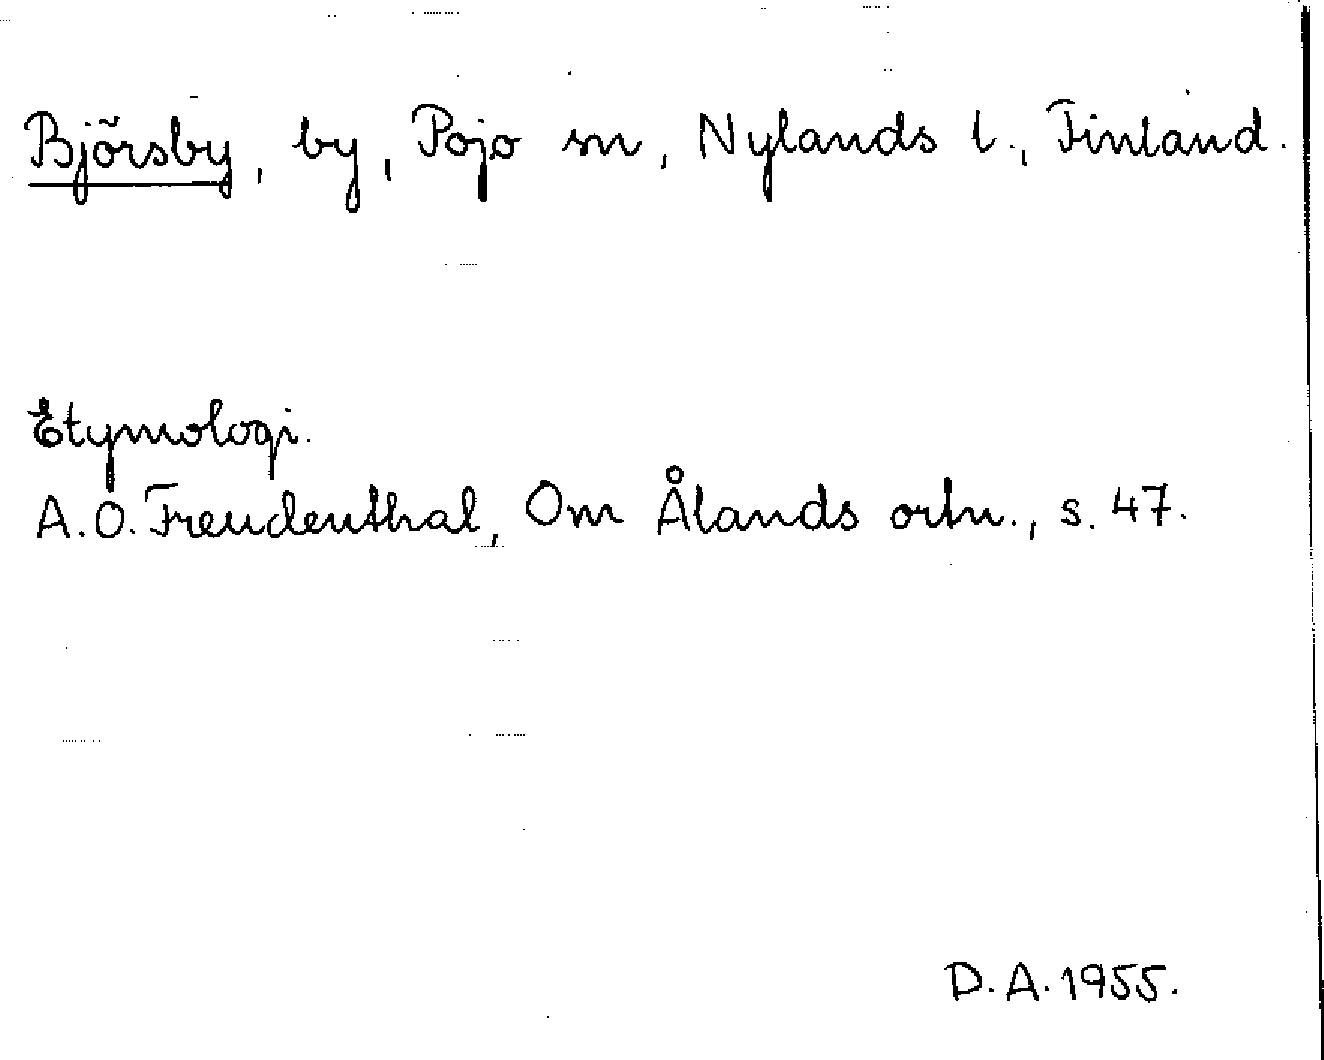 Björsby, by, Pojo sn, Nylands l., Finland.
Etymologi.
A.O. Freudenthal, Om Ålands ortn., s. 47.
D.A. 1955.